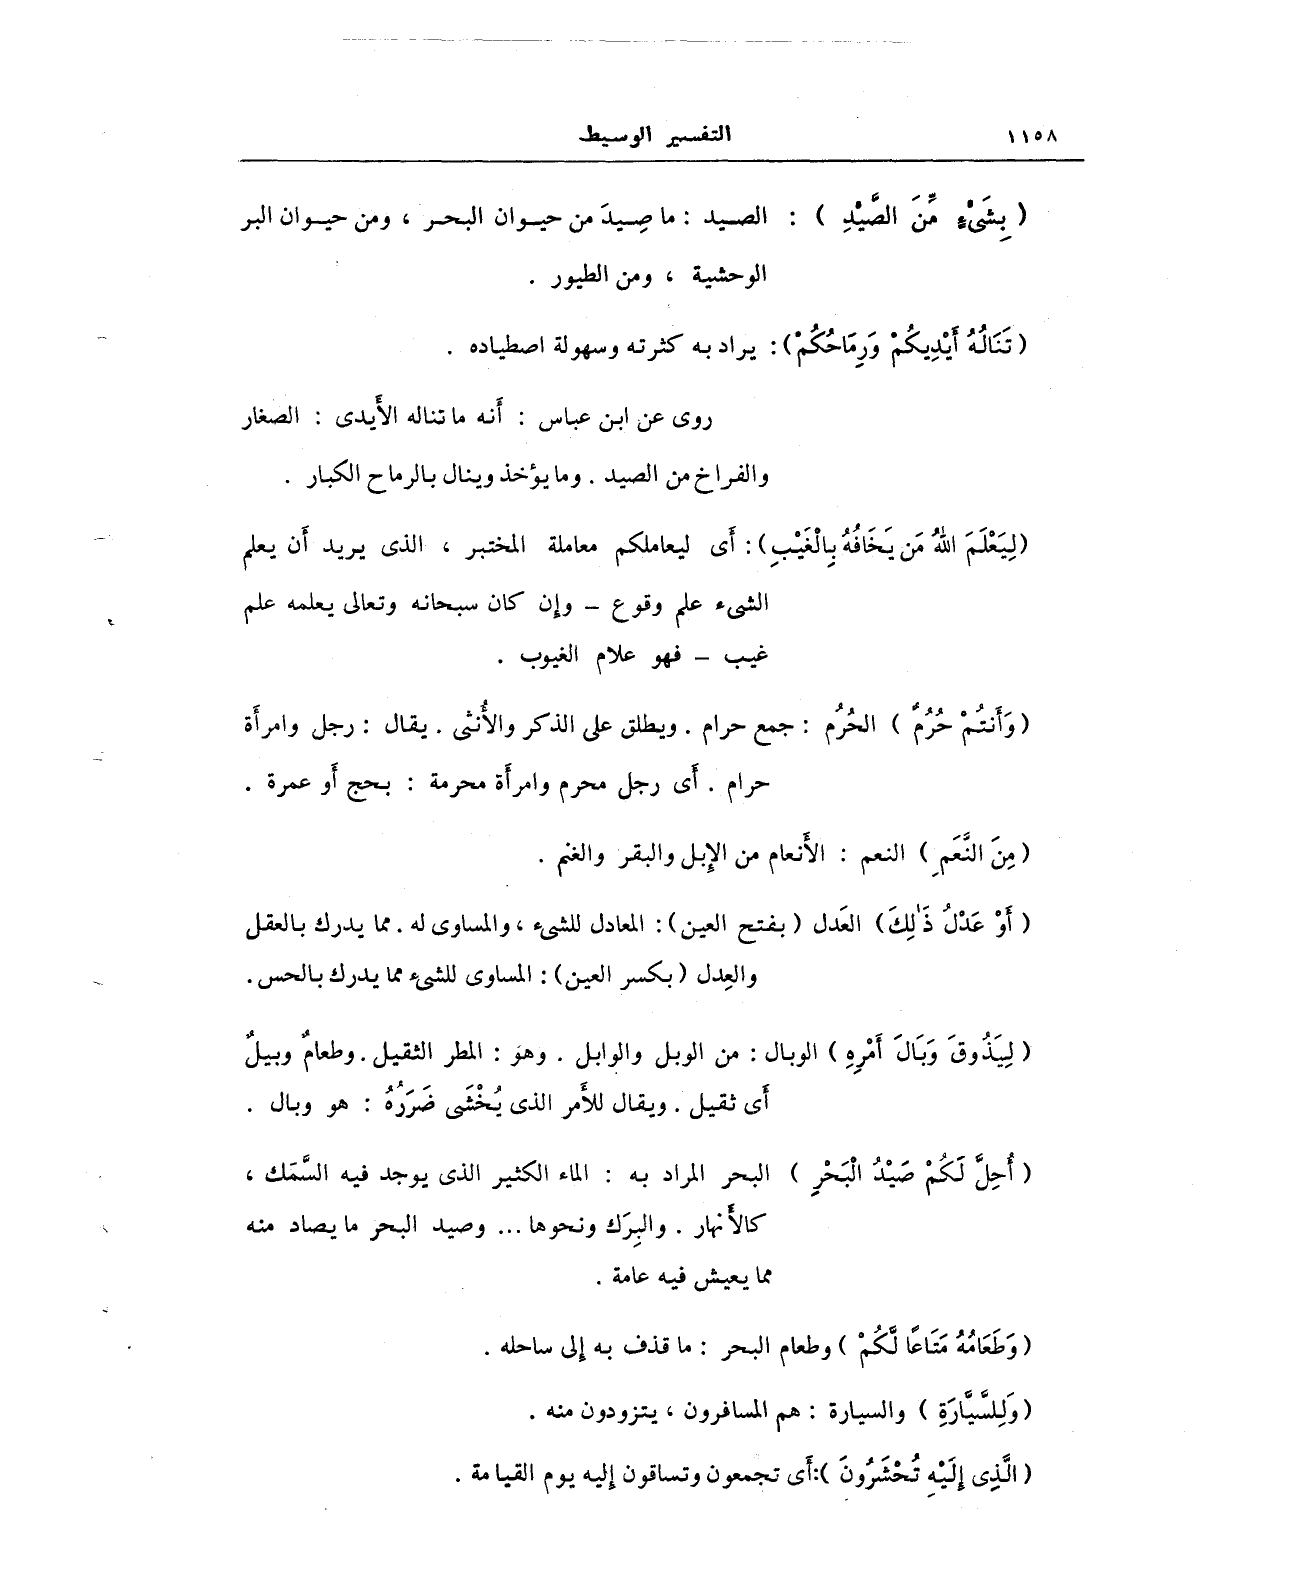 ١١٥٨
التفسير الوسيط
( بِشَىْءٍ مِّنَ الصَّيْدِ ) : الصيد : ما صِيدَ من حيوان البحر ، ومن حيوان البر
الوحشية ، ومن الطيور .
( تَنَالُهُ أَيْدِيكُمْ وَرِمَاحُكُمْ ) : يراد به كثرته وسهولة اصطياده .
روى عن ابن عباس : أَنه ما تناله الأَيدى : الصغار
والفراخ من الصيد . وما يؤخذ وينال بالرماح الكبار .
(لِيَعْلَمَ اللهُ مَن يَخَافُهُ بِالْغَيْبِ) : أَى ليعاملكم معاملة المختبر ، الذى يريد أَن يعلم
الشىء علم وقوع – وإن كان سبحانه وتعالى يعلمه علم
غيب – فهو علام الغيوب .
( وَأَنتُمْ حُرُمٌ ) الحُرُم : جمع حرام . ويطلق على الذكر والأُنثى . يقال : رجل وامرأَة
حرام . أَى رجل محرم وامرأَة محرمة : بحج أَو عمرة .
( مِنَ النَّعَمِ ) النعم : الأَنعام من الإِبل والبقر والغنم .
( أَوْ عَدْلُ ذَٰلِكَ ) العَدل ( بفتح العين ) : المعادل للشىء ، والمساوى له . مما يدرك بالعقل
والعِدل ( بكسر العين ) : المساوى للشىء مما يدرك بالحس .
( لِيَذُوقَ وَبَالَ أَمْرِهِ ) الوبال : من الوبل والوابل . وهو : المطر الثقيل . وطعامٌ وبيلٌ
أَى ثقيل . ويقال للأَمر الذى يُخْشَى ضَرَرُهُ : هو وبال .
( أُحِلَّ لَكُمْ صَيْدُ الْبَحْرِ ) البحر المراد به : الماء الكثير الذى يوجد فيه السَّمَك ،
كالأَنهار . والبِرَك ونحوها ... وصيد البحر ما يصاد منه
مما يعيش فيه عامة .
( وَطَعَامُهُ مَتَاعًا لَّكُمْ ) وطعام البحر : ما قذف به إِلى ساحله .
( وَلِلسَّيَّارَةِ ) والسيارة : هم المسافرون ، يتزودون منه .
( الَّذِى إِلَيْهِ تُحْشَرُونَ ) : أَى تجمعون وتساقون إِليه يوم القيامة .